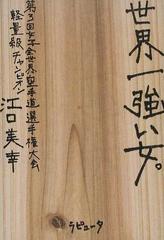 世界一強い女。
第3回女子全世界空手道選手権大会
軽量級チャンピオン
江口美幸
ラピュータ